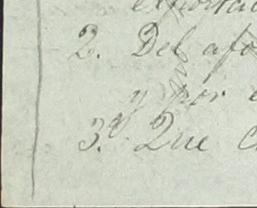 2. Del afo
y por e
3.ª Que c